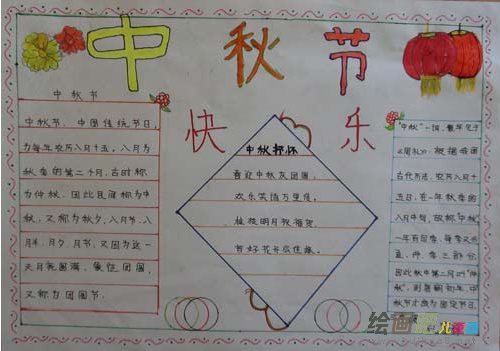 中秋节
快乐
中秋节
中秋节,中国传统节日,
为每年农历八月十五,八月为
秋季的第二个月,古时称
为仲秋,因此民间称为中
秋,又称为秋夕、八月节、八
月半、月夕、月节,又因为这一
天月亮圆满,象征团圆,
又称为团圆节。
中秋抒怀
喜迎中秋庆团圆,
欢乐笑语万里传,
明月祝福
有好花开
"中秋"一词,最早见于
《周礼》,根据我国
古代历法,农历八月十
五日,在一年秋季的
八月中旬,故称"中秋"
一年有四季,每季又分
孟、仲、季三部分,
因此秋中第二月叫"仲
秋",到唐朝初年,中
秋节才成为固定节日。
绘画吧